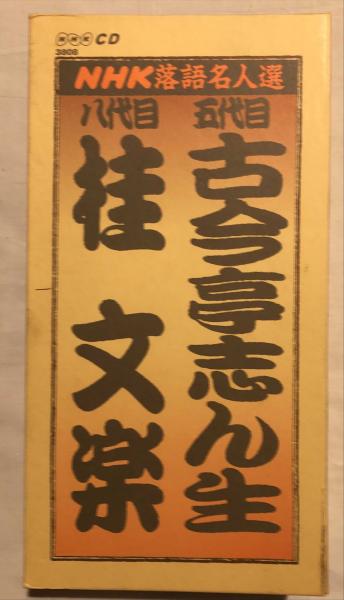 NHK CD
3808
NHK落語名人選
五代目
古今亭志ん生
八代目
桂 文楽